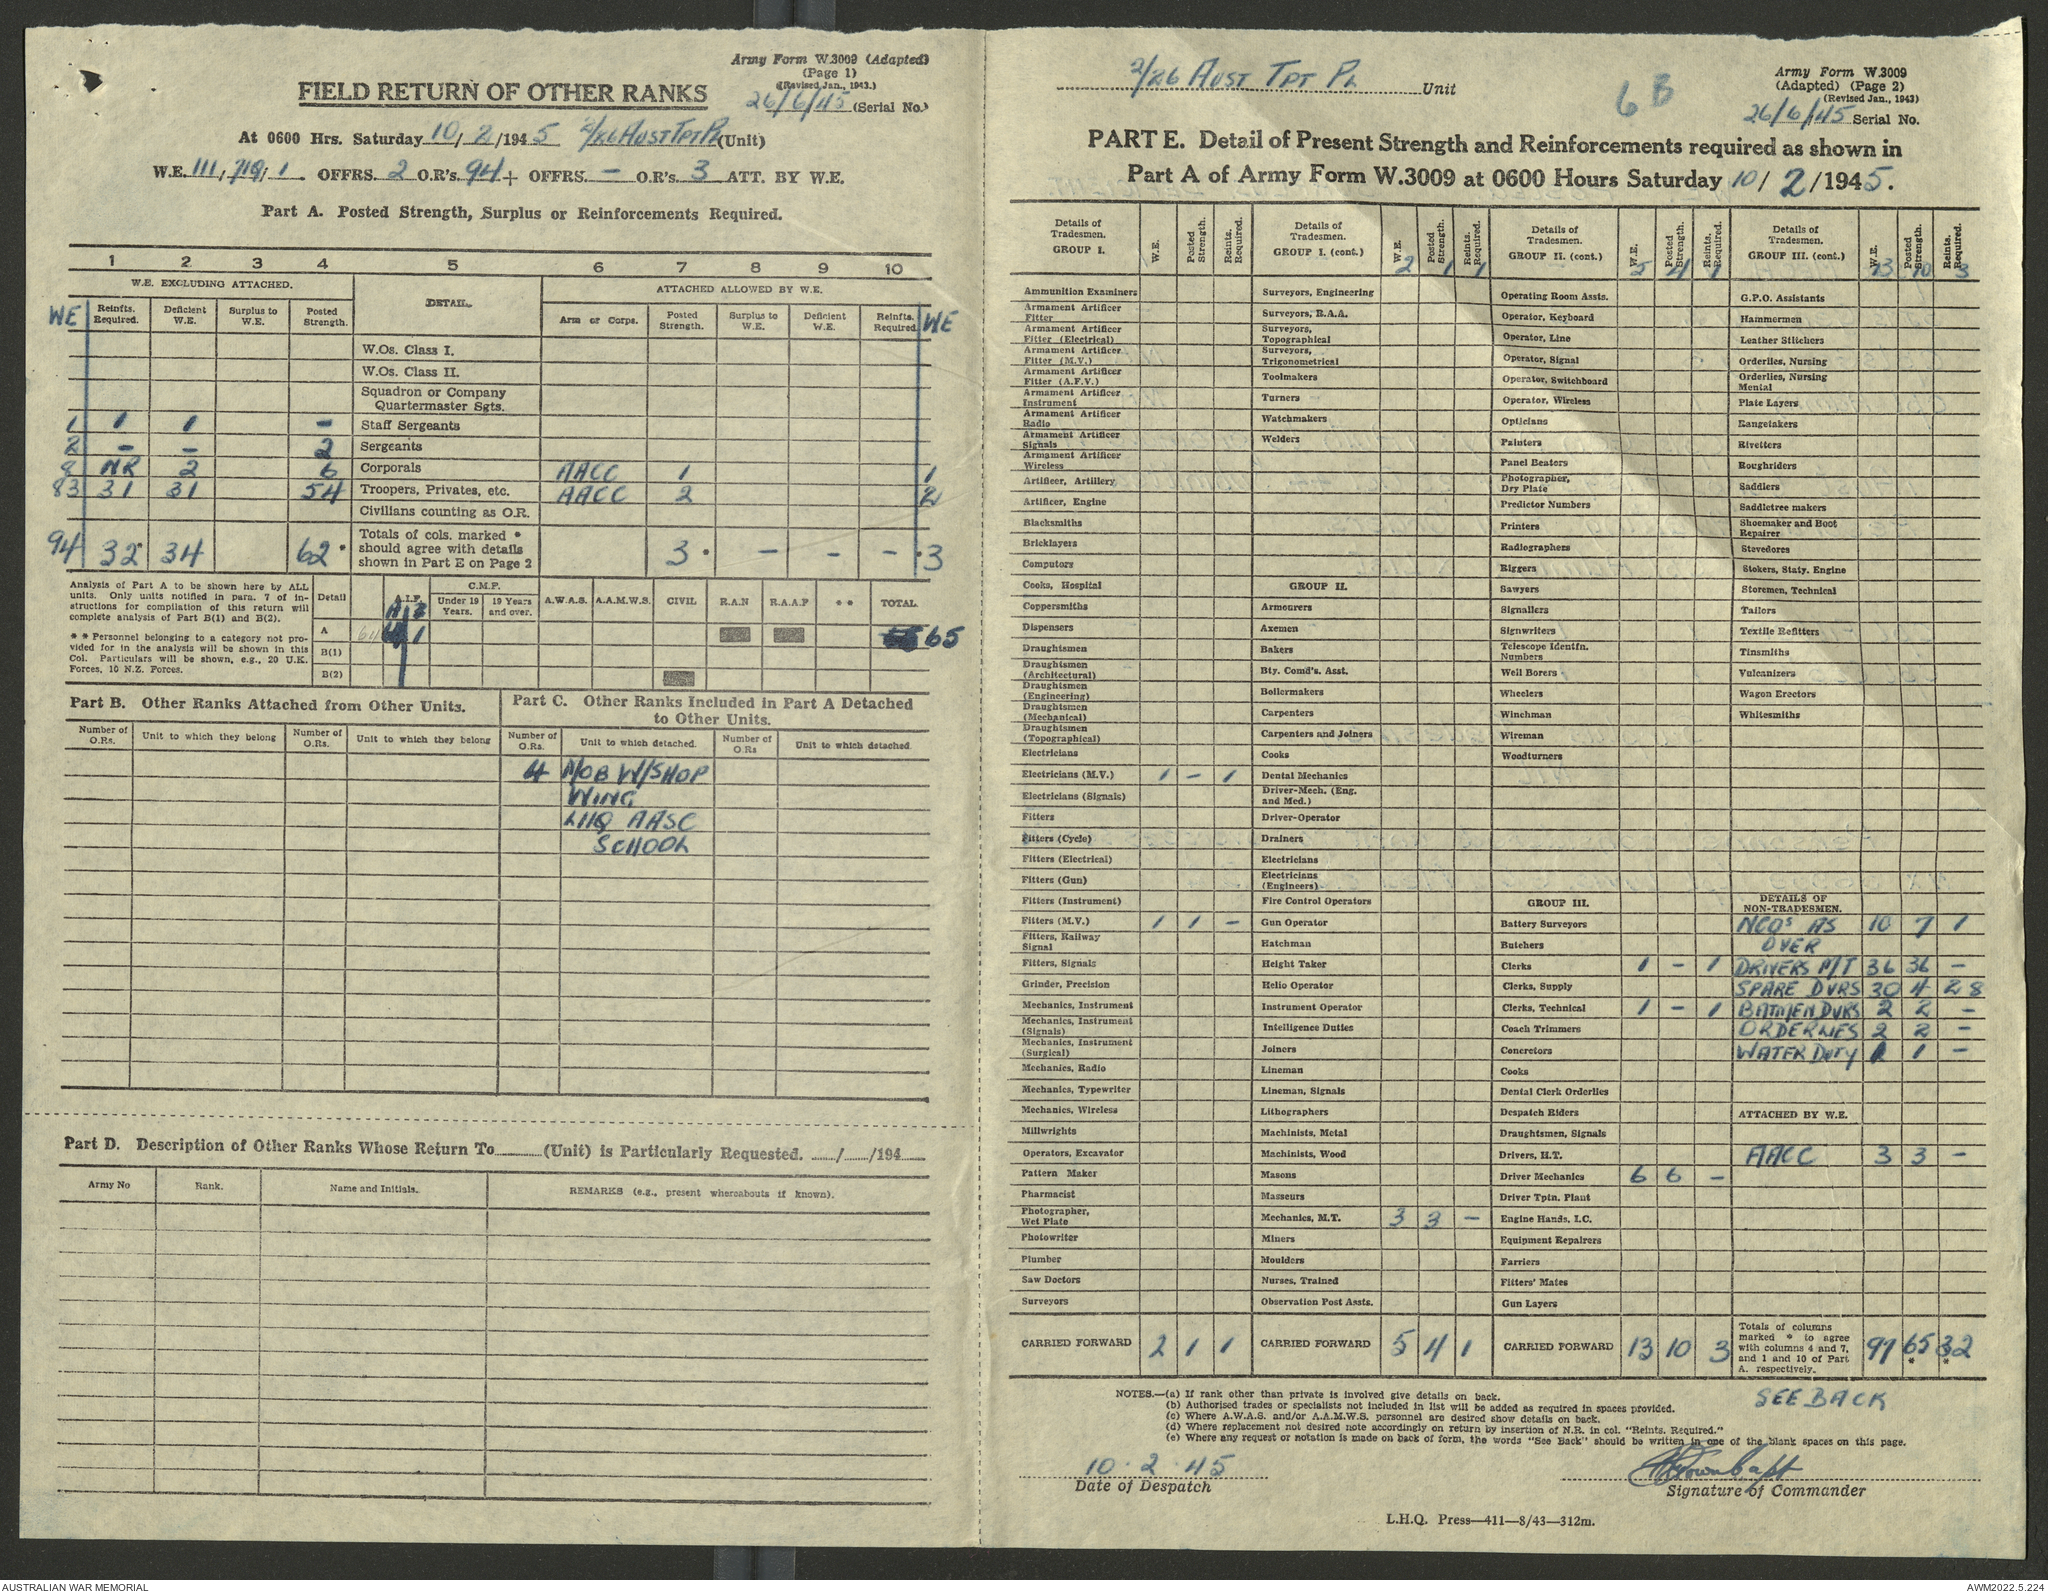 Army Form W.3009 (Adapted)
(Page 1)
(Revised Jan., 1943.)
FIELD RETURN OF OTHER RANKS
26/6/45 (Serial No.)
At 0600 Hrs. Saturday 10/2/1945 2/26 AUST TPT PL (Unit)
W.E. 111, 719, 1. OFFRS. 2 O.R's. 94 + OFFRS. – O.R's 3 ATT. BY W.E.
Part A. Posted Strength, Surplus or Reinforcements Required.
1 2 3 4 5 6 7 8 9 10
W.E. EXCLUDING ATTACHED. DETAIL. ATTACHED ALLOWED BY W.E.
WE Reinfts. Required. Deficient W.E. Surplus to W.E. Posted Strength. Arm or Corps. Posted Strength. Surplus to W.E. Deficient W.E. Reinfts. Required. WE
W.Os. Class I.
W.Os. Class II.
Squadron or Company Quartermaster Sgts.
1 1 1 – Staff Sergeants
2 – – 2 Sergeants
8 NR 2 6 Corporals AACC 1 1
83 31 31 54 Troopers, Privates, etc. AACC 2 2
Civilians counting as O.R.
94 32* 34 62* Totals of cols. marked * should agree with details shown in Part E on Page 2 3* – – – *3
Analysis of Part A to be shown here by ALL
units. Only units notified in para. 7 of in-
structions for compilation of this return will
complete analysis of Part B(1) and B(2).
* * Personnel belonging to a category not pro-
vided for in the analysis will be shown in this
Col. Particulars will be shown, e.g., 20 U.K.
Forces, 10 N.Z. Forces.
Detail A.I.F. C.M.F. Under 19 Years. 19 Years and over. A.W.A.S. A.A.M.W.S. CIVIL R.A.N R.A.A.F * * TOTAL
A 64 1 65
B(1)
B(2)
Part B. Other Ranks Attached from Other Units.
Part C. Other Ranks Included in Part A Detached to Other Units.
Number of O.Rs. Unit to which they belong Number of O.Rs. Unit to which they belong Number of O.Rs. Unit to which detached. Number of O.Rs Unit to which detached.
4 MOB W/SHOP
WING
LHQ AASC
SCHOOL
Part D. Description of Other Ranks Whose Return To (Unit) is Particularly Requested. / /194
Army No Rank. Name and Initials. REMARKS (e.g., present whereabouts if known).
2/26 AUST TPT PL Unit
6B
Army Form W.3009
(Adapted) (Page 2)
(Revised Jan., 1943)
26/6/45 Serial No.
PART E. Detail of Present Strength and Reinforcements required as shown in
Part A of Army Form W.3009 at 0600 Hours Saturday 10/2/1945.
Details of Tradesmen. GROUP I. W.E. Posted Strength. Reints. Required.
Ammunition Examiners
Armament Artificer Fitter
Armament Artificer Fitter (Electrical)
Armament Artificer Fitter (M.V.)
Armament Artificer Fitter (A.F.V.)
Armament Artificer Instrument
Armament Artificer Radio
Armament Artificer Signals
Armament Artificer Wireless
Artificer, Artillery
Artificer, Engine
Blacksmiths
Bricklayers
Computors
Cooks, Hospital
Coppersmiths
Dispensers
Draughtsmen
Draughtsmen (Architectural)
Draughtsmen (Engineering)
Draughtsmen (Mechanical)
Draughtsmen (Topographical)
Electricians
Electricians (M.V.) 1 – 1
Electricians (Signals)
Fitters
Fitters (Cycle)
Fitters (Electrical)
Fitters (Gun)
Fitters (Instrument)
Fitters (M.V.) 1 1 –
Fitters, Railway Signal
Fitters, Signals
Grinder, Precision
Mechanics, Instrument
Mechanics, Instrument (Signals)
Mechanics, Instrument (Surgical)
Mechanics, Radio
Mechanics, Typewriter
Mechanics, Wireless
Millwrights
Operators, Excavator
Pattern Maker
Pharmacist
Photographer, Wet Plate
Photowriter
Plumber
Saw Doctors
Surveyors
CARRIED FORWARD 2 1 1
Details of Tradesmen. GROUP I. (cont.) W.E. Posted Strength. Reints. Required.
2 1 1
Surveyors, Engineering
Surveyors, R.A.A.
Surveyors, Topographical
Surveyors, Trigonometrical
Toolmakers
Turners
Watchmakers
Welders
GROUP II.
Armourers
Axemen
Bakers
Bty. Comd's. Asst.
Boilermakers
Carpenters
Carpenters and Joiners
Cooks
Dental Mechanics
Driver-Mech. (Eng. and Med.)
Driver-Operator
Drainers
Electricians
Electricians (Engineers)
Fire Control Operators
Gun Operator
Hatchman
Height Taker
Helio Operator
Instrument Operator
Intelligence Duties
Joiners
Lineman
Lineman, Signals
Lithographers
Machinists, Metal
Machinists, Wood
Masons
Masseurs
Mechanics, M.T. 3 3 –
Miners
Moulders
Nurses, Trained
Observation Post Assts.
CARRIED FORWARD 5 4 1
Details of Tradesmen. GROUP II. (cont.) W.E. Posted Strength. Reints. Required.
5 4 1
Operating Room Assts.
Operator, Keyboard
Operator, Line
Operator, Signal
Operator, Switchboard
Operator, Wireless
Opticians
Painters
Panel Beaters
Photographer, Dry Plate
Predictor Numbers
Printers
Radiographers
Riggers
Sawyers
Signallers
Signwriters
Telescope Identfn. Numbers
Well Borers
Wheelers
Winchman
Wireman
Woodturners
GROUP III.
Battery Surveyors
Butchers
Clerks 1 – 1
Clerks, Supply
Clerks, Technical 1 – 1
Coach Trimmers
Concretors
Cooks
Dental Clerk Orderlies
Despatch Riders
Draughtsmen, Signals
Drivers, H.T.
Driver Mechanics 6 6 –
Driver Tptn. Plant
Engine Hands, I.C.
Equipment Repairers
Farriers
Fitters' Mates
Gun Layers
CARRIED FORWARD 13 10 3
Details of Tradesmen. GROUP III. (cont.) W.E. Posted Strength. Reints. Required.
13 10 3
G.P.O. Assistants
Hammermen
Leather Stitchers
Orderlies, Nursing
Orderlies, Nursing Mental
Plate Layers
Rangetakers
Rivetters
Roughriders
Saddlers
Saddletree makers
Shoemaker and Boot Repairer
Stevedores
Stokers, Staty. Engine
Storemen, Technical
Tailors
Textile Refitters
Tinsmiths
Vulcanizers
Wagon Erectors
Whitesmiths
DETAILS OF NON-TRADESMEN.
NCOs AS 10 7 1
OVER
DRIVERS M/T 36 36 –
SPARE DVRS 30 4 28
BATMEN DVRS 2 2 –
ORDERLIES 2 2 –
WATER DUTY 1 1 –
ATTACHED BY W.E.
AACC 3 3 –
Totals of columns marked * to agree with columns 4 and 7, and 1 and 10 of Part A. respectively. 97 65* 32*
NOTES.—(a) If rank other than private is involved give details on back.
(b) Authorised trades or specialists not included in list will be added as required in spaces provided.
(c) Where A.W.A.S. and/or A.A.M.W.S. personnel are desired show details on back.
(d) Where replacement not desired note accordingly on return by insertion of N.R. in col. "Reints. Required."
(e) Where any request or notation is made on back of form, the words "See Back" should be written in one of the blank spaces on this page.
SEE BACK
10.2.45
Date of Despatch
Capt
Signature of Commander
L.H.Q. Press—411—8/43—312m.
AUSTRALIAN WAR MEMORIAL
AWM2022.5.224